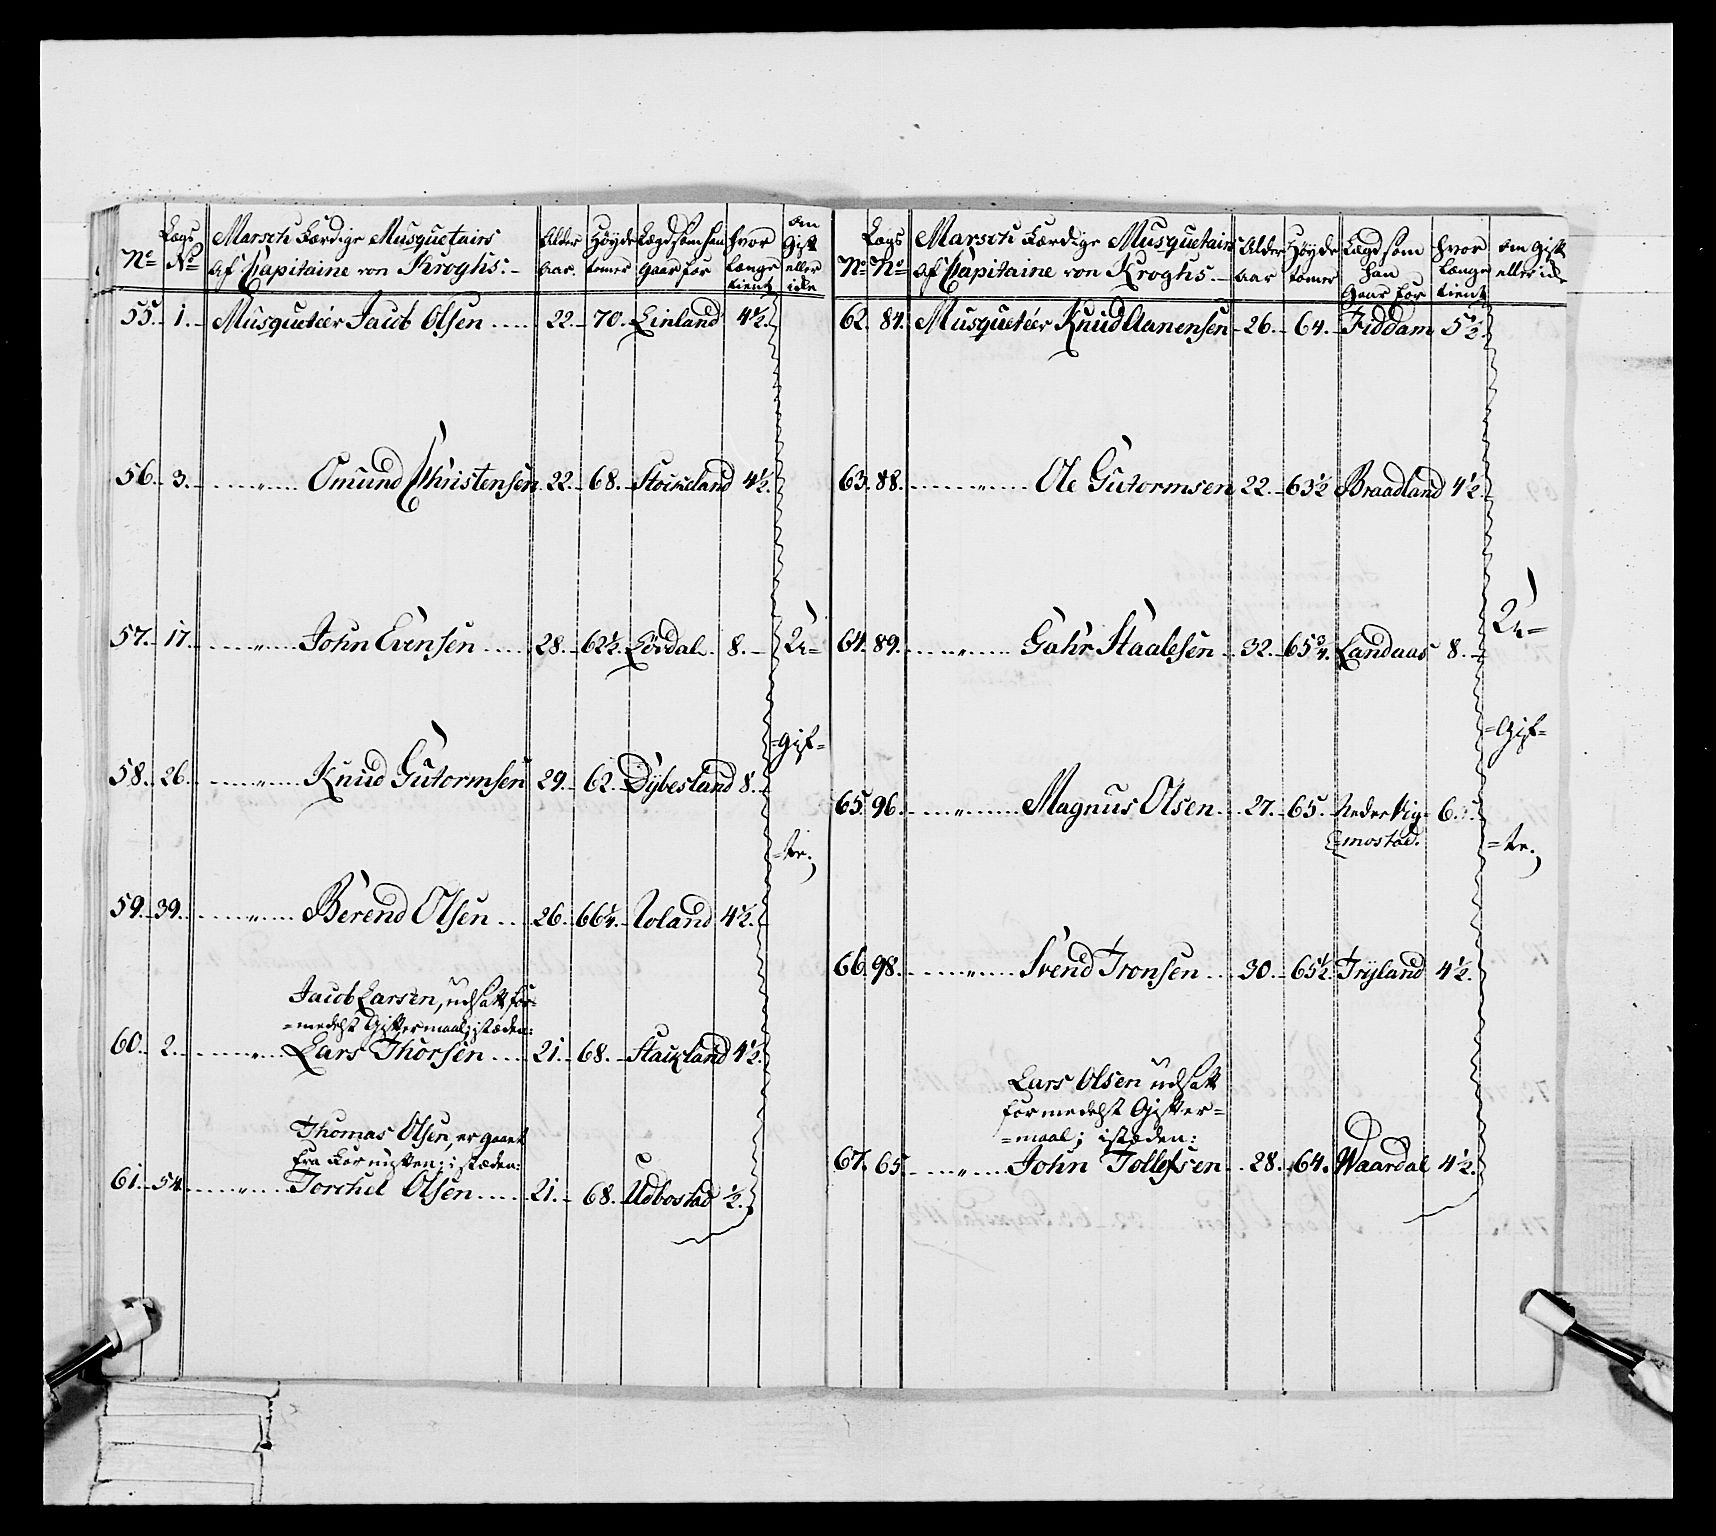 No | Lægs No | Marsch Færdige Musquetairs af Capitaine von Kroghs:- | Alder Aar | Høyde tomer | Lægd som han Gaar for | hvor længe tient | om Gift eller ikke
55. | 1. | Musqueteér Jacob Olsen | 22. | 70. | Einland | 4½.
56. | 3. | „ Omund Christensen | 22. | 68. | Stockeland | 4½.
57. | 17. | „ John Evensen | 28. | 62½. | Lördal. | 8. | U=
58. | 26. | „ Knud Gutormsen | 29. | 62. | Dÿbesland | 8. | =gif=
=te.
59. | 39. | „ Berend Olsen | 26. | 66¼. | Roland | 4½.
Jacob Larsen, udsatt for=
=medelst Giftermaal; istæden:
60. | 2. | „ Lars Thorsen | 21. | 68. | Stackland | 4½.
Thomas Olsen, er gaaet
fra Compagniet; istæden:
61. | 54. | „ Torchel Olsen | 21. | 68. | Udbostad | ½.
No | Lægs No | Marsch Færdige Musquetairs af Capitaine von Kroghs | Alder Aar | Høyde tomer | Lægd som han Gaar for | hvor Længe tient | om Gift eller ikke
62. | 84. | Musqueteér Knud Aanensen | 26. | 64. | Fiddam | 5½.
63. | 88. | „ Ole Gutormsen | 22. | 63½ | Braadland | 4½.
64. | 89. | „ Gahr Staalesen | 32. | 65¾. | Landaas | 8. | U=
=Gif=
65. | 96. | „ Magnus Olsen | 27. | 65. | Neder Vig=
=mostad. | 6. | =te.
66. | 98. | „ Svend Tronsen | 30. | 65½ | Trÿland | 4½.
Lars Olsen udsatt
formedelst Gifter=
=maal; istæden:
67. | 65. | „ John Tollefsen | 28. | 64. | Waardal | 4½.